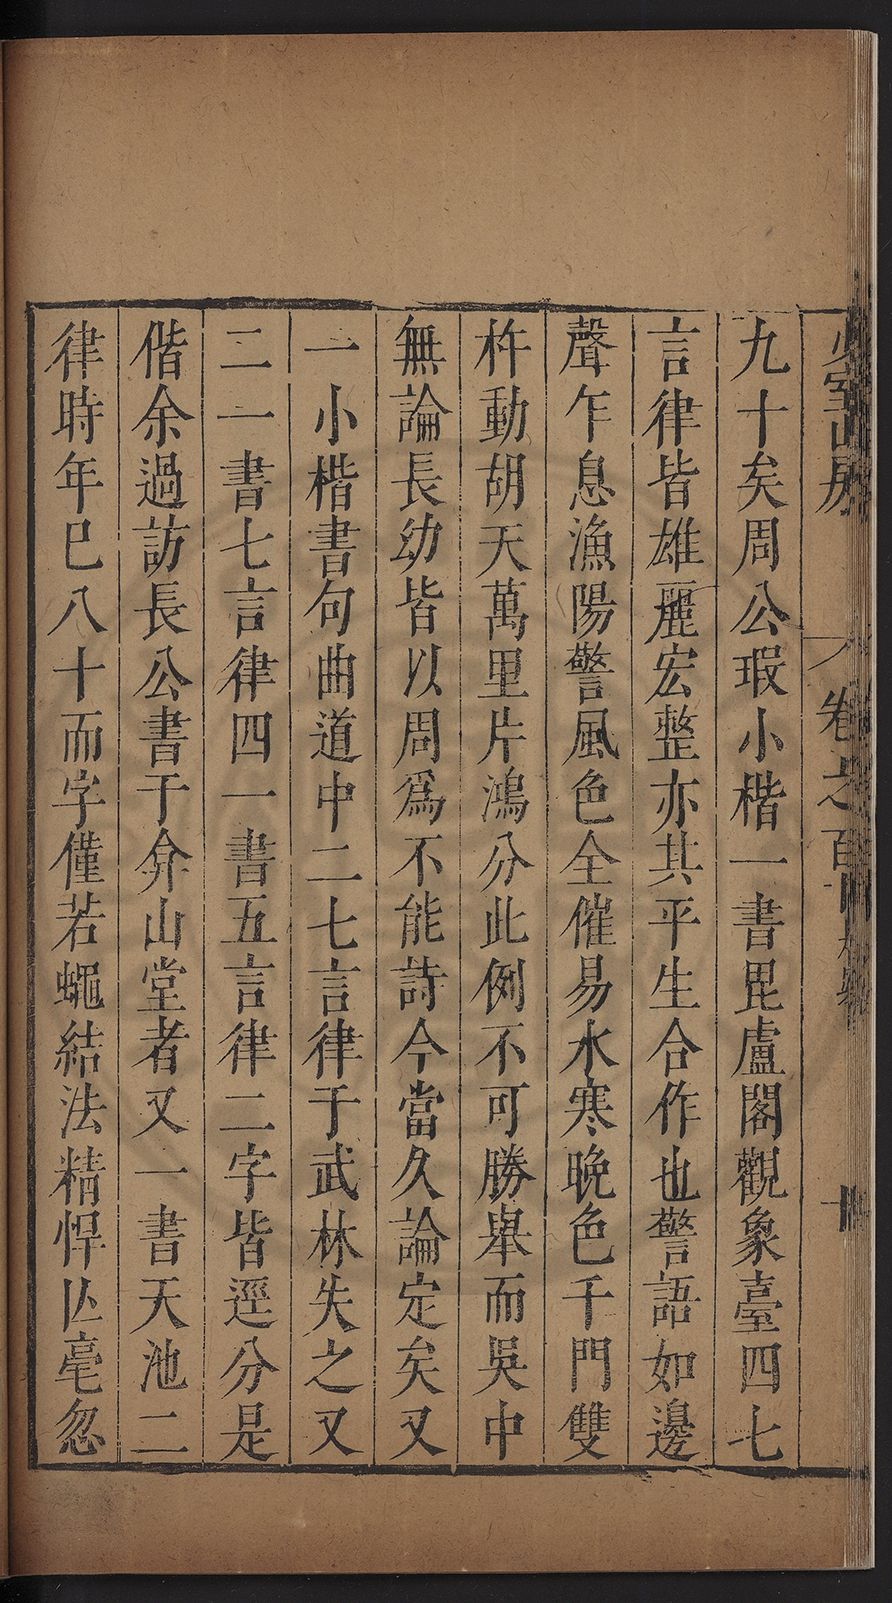 少室山房 卷之百
九十矣周公瑕小楷一書毘盧閣觀象臺四七
言律皆雄麗宏整亦其平生合作也警語如邊
聲乍息漁陽警風色全催易水寒晚色千門雙
杵動胡天萬里片鴻分此例不可勝舉而吳中
無論長幼皆以周爲不能詩今當久論定矣又
一小楷書句曲道中二七言律于武林失之又
二一書七言律四一書五言律二字皆逕分是
偕余過訪長公書于弇山堂者又一書天池二
律時年巳八十而字僅若蠅結法精悍亾毫忽